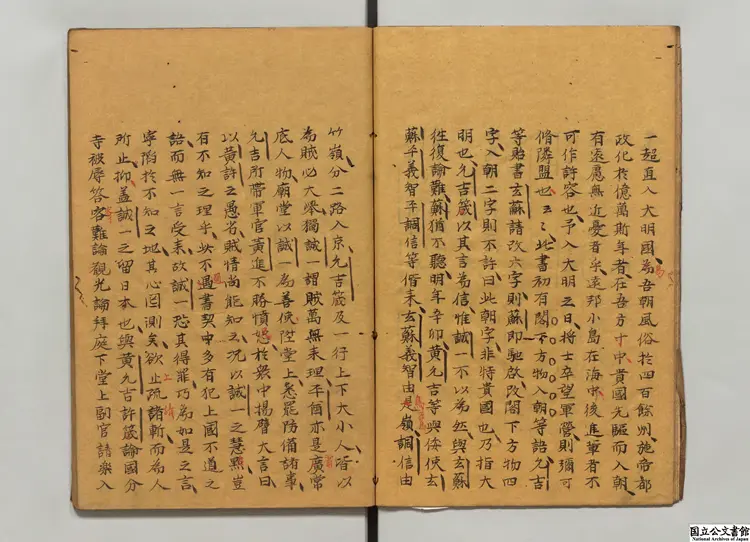 一超直入大明國爲吾朝風俗於四百餘州施帝都
政化於億萬斯年者在吾方寸中貴國先驅而入朝
有遠慮無近憂者乎遠邦小島在海中後進輩者不
可作許容也予入大明之日將士卒望軍營則彌可
脩隣盟也云云此書初有閤下方物入朝等語允吉
等貽書玄蘇請改六字則蘇即馳啓改閤下方物四
字入朝二字則不許曰此朝字非特貴國也乃指大
明也允吉箴以其言爲信惟誠一不以爲然與玄蘇
徃復論難蘇猶不聽明年辛卯黄允吉等與倭使玄
蘇平義智平調信等偕来玄蘇義智由是嶺調信由
竹嶺分二路入京允吉箴及一行上下大小人皆以
為賊必大舉獨誠一謂賊萬無来理平酋亦是庸常
底人物廟堂以誠一為善使陞堂上悉罷防備諸事
允吉所帶軍官黄進不勝憤怒於衆中揚臂大言曰
以黄許之愚省賊情尚能知之况以誠一之慧黠豈
有不知之理乎此不過書契中多有犯上國不道之
語而無一言受来故誠一恐其得罪巧為如是之言
寧陷於不知之地其心罔測矣欲止疏請斬而為人
所止抑盖誠一之留日本也與黄允吉許箴論國分
寺被辱答客難論觀光論拜庭下堂上副官請樂入
国立公文書館
National Archives of Japan